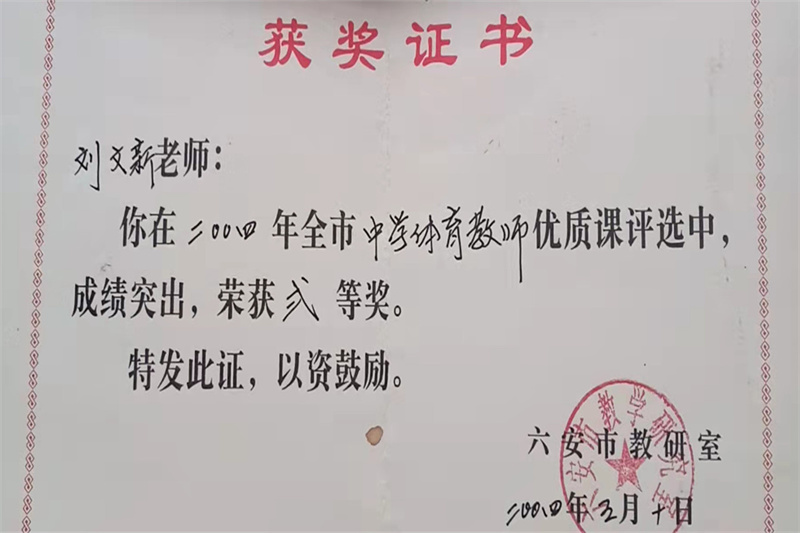 获奖证书
刘文新老师：
你在二00四年全市中学体育教师优质课评选中，
成绩突出，荣获贰等奖。
特发此证，以资鼓励。
六安市教研室
二00四年五月十日
六安市教学研究室